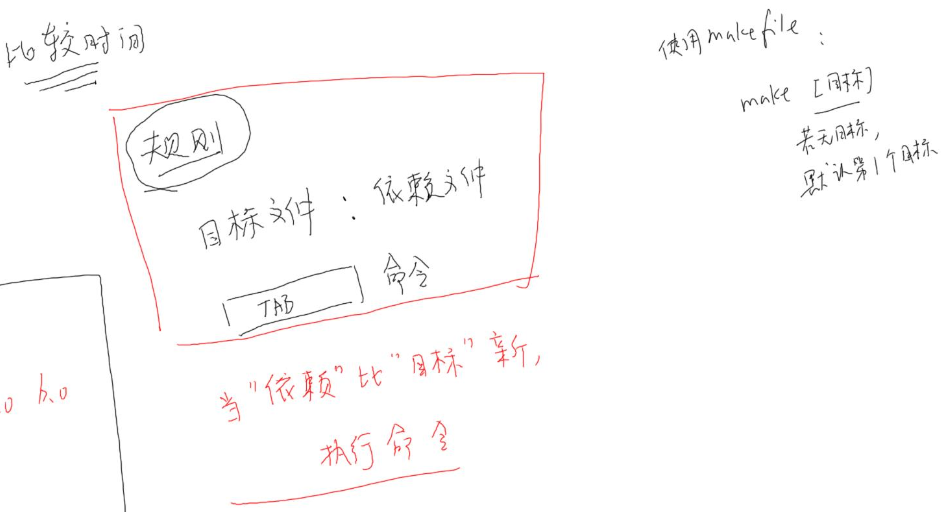 比较时间
规则
目标文件 : 依赖文件
TAB 命令
.o b.o
当"依赖"比"目标"新,
执行命令
使用makefile :
make [目标]
若无目标,
默认第1个目标